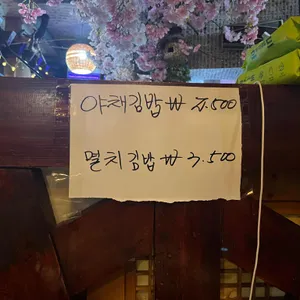 야채김밥 ₩ 3.500
멸치김밥 ₩ 3.500